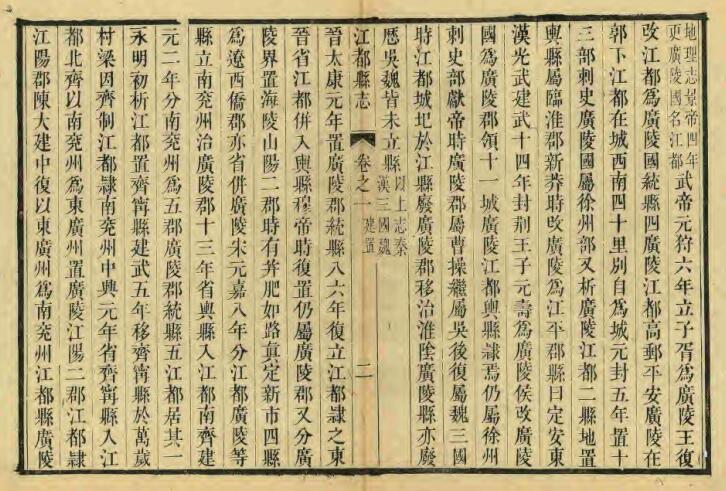 地理志景帝四年
更廣陵國名江都
武帝元狩六年立子胥爲廣陵王復
改江都爲廣陵國統縣四廣陵江都高郵平安廣陵在
郭下江都在城西南四十里別自爲城元封五年置十
三部刺史廣陵國屬徐州部又析廣陵江都二縣地置
輿縣屬臨淮郡新莽時改廣陵爲江平郡縣曰定安東
漢光武建武十四年封荆王子元壽爲廣陵侯改廣陵
國爲廣陵郡領十一城廣陵江都輿縣隷焉仍屬徐州
刺史部獻帝時廣陵郡屬曹操繼屬吳後復屬魏三國
時江都城圮於江縣廢廣陵郡移治淮陰廣陵縣亦廢
歷吳魏皆未立縣
以上志秦
漢三國魏
江都縣志
卷之一
建置
二
晉太康元年置廣陵郡統縣八六年復立江都隷之東
晉省江都併入輿縣穆帝時復置仍屬廣陵郡又分廣
陵界置海陵山陽二郡時有并肥如路眞定新市四縣
爲遼西僑郡亦省併廣陵宋元嘉八年分江都廣陵等
縣立南兖州治廣陵郡十三年省輿縣入江都南齊建
元二年分南兖州爲五郡廣陵郡統縣五江都居其一
永明初析江都置齊甯縣建武五年移齊甯縣於萬歲
村梁因齊制江都隷南兖州中興元年省齊甯縣入江
都北齊以南兖州爲東廣州置廣陵江陽二郡江都隷
江陽郡陳大建中復以東廣州爲南兖州江都縣廣陵